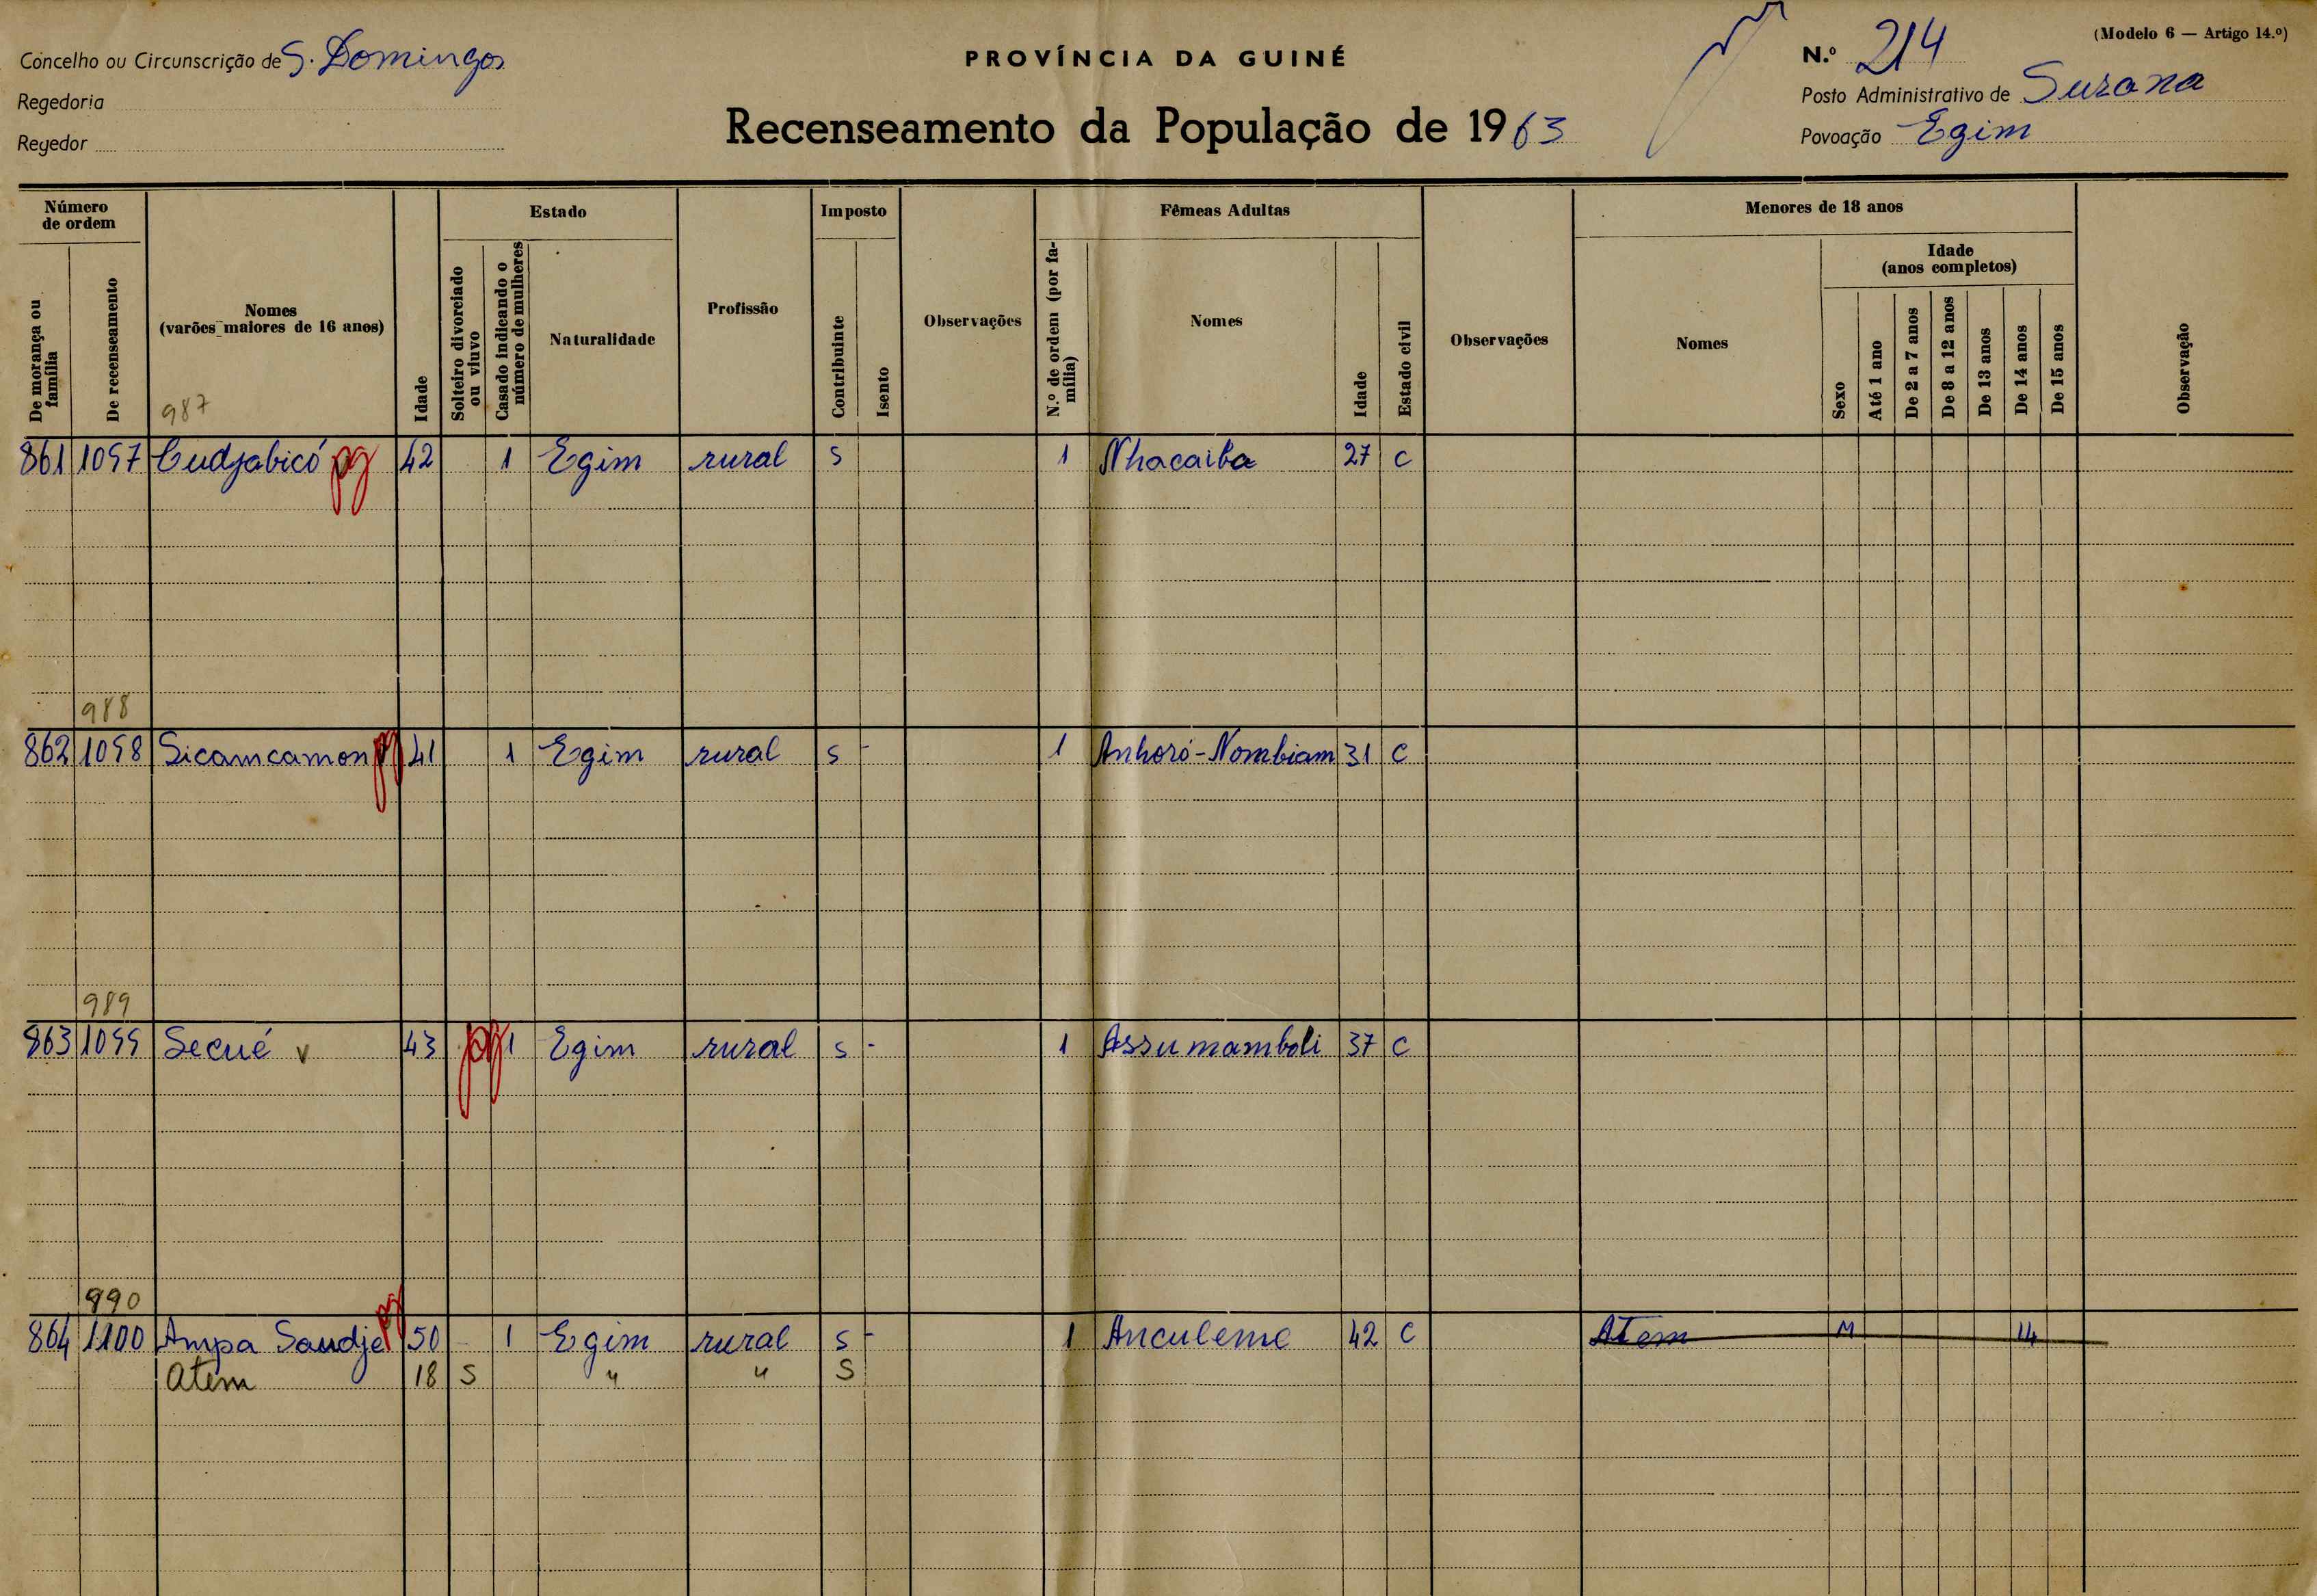 Concelho ou Circunscrição de S. Domingos
Regedoria
Regedor
PROVÍNCIA DA GUINÉ
Recenseamento da População de 1963
(Modelo 6 — Artigo 14.º)
N.º 214
Posto Administrativo de Suzana
Povoação Egim
Número de ordem
De morança ou família
De recenseamento
Nomes
(varões maiores de 16 anos)
987
Idade
Estado
Solteiro divorciado ou viuvo
Casado indicando o número de mulheres
Naturalidade
Profissão
Imposto
Contribuinte
Isento
Observações
Fêmeas Adultas
N.º de ordem (por família)
Nomes
Idade
Estado civil
Observações
Menores de 18 anos
Nomes
Idade
(anos completos)
Sexo
Até 1 ano
De 2 a 7 anos
De 8 a 12 anos
De 13 anos
De 14 anos
De 15 anos
Observação
861 1097 Cudjabicó pg 42 1 Egim rural s 1 Nhacaiba 27 c
988
862 1098 Sicamcamon pg 41 1 Egim rural s - 1 Anhoró-Nombiam 31 c
989
863 1099 Secué v 43 pg 1 Egim rural s - 1 Assumamboli 37 c
990
864 1100 Ampa Saudje pg 50 1 Egim rural s - 1 Anculeme 42 c Atem M 14
Atem 18 S " " S